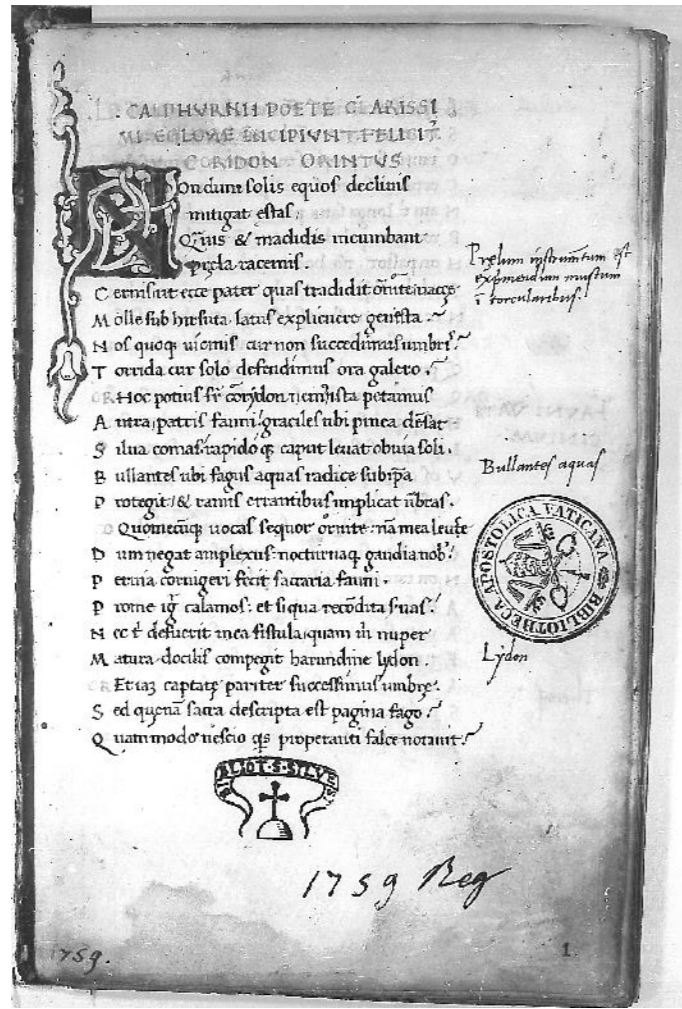 . CALPHVRNII POETE CLARISSI
MI EGLOVE INCIPIVNT FELICIT̄.
CORIDON ORINTVS
Nondum solis equos declinis
mitigat ęstas.
Q̄uis & madidis incumbant
pręla racemis.
Cernis ut ecce pater quas tradidit ornite uaccę
Molle sub hirsuta latus explicuere genista.
Nos quoq; uicinis cur non succedimus umbris?
Torrida cur solo defendimus ora galero.
Hoc potius fr̄ corydon nemus ista petamus
Antra patris fauni: graciles ubi pinea densat
Silua comas: rapido q; caput leuat obuia soli.
Bullantes ubi fagus aquas radice sub ip̄a
Protegit: & ramis errantibus implicat ūbras.
Quomecūq; uocas sequor ornite: nā mea leuce
Dum negat amplexus: nocturnaq; gaudia nob̄:
Peruia cornigeri fecit sacraria fauni.
Prome igr̄ calamos: et si qua recōdita seruas:
Nec t̄ defuerit mea fistula: quam m̄ nuper
Matura docilis compegit harundine lydon.
Et iaȝ captatę pariter successimus umbrę.
Sed quenā sacra descripta est pagina fago:
Quam modo nescio q̄s properanti falce notauit?
Pręlum instrumētum est
exprimendum mustum
ī torcularibus.
Bullantes aquas
BIBLIOTHECA APOSTOLICA VATICANA
Lydon
BIBLIOT·S·SYLVES
1759 Reg
1759.
1